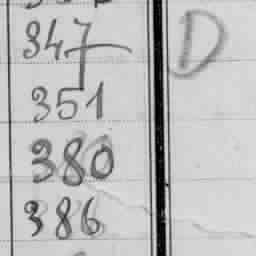 347 D
351
380
386